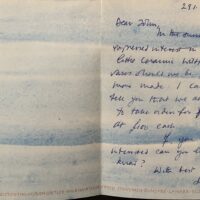 29.1.
Dear John,
In the
expressed interest in
little ceramic
vases should we be
more made. I can
tell you that we are
to take orders for
at £100 each.
If you
interested can you
know?
With best